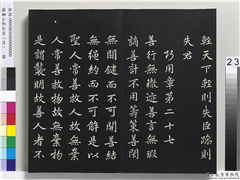 輕天下輕則失臣躁則
失君
巧用章第二十七
善行無轍迹善言無瑕
謫善計不用籌策善閉
無關鍵而不可開善結
無繩約而不可解是以
聖人常善救人故無棄
人常善救物故無棄物
是謂襲明故善人者不
23